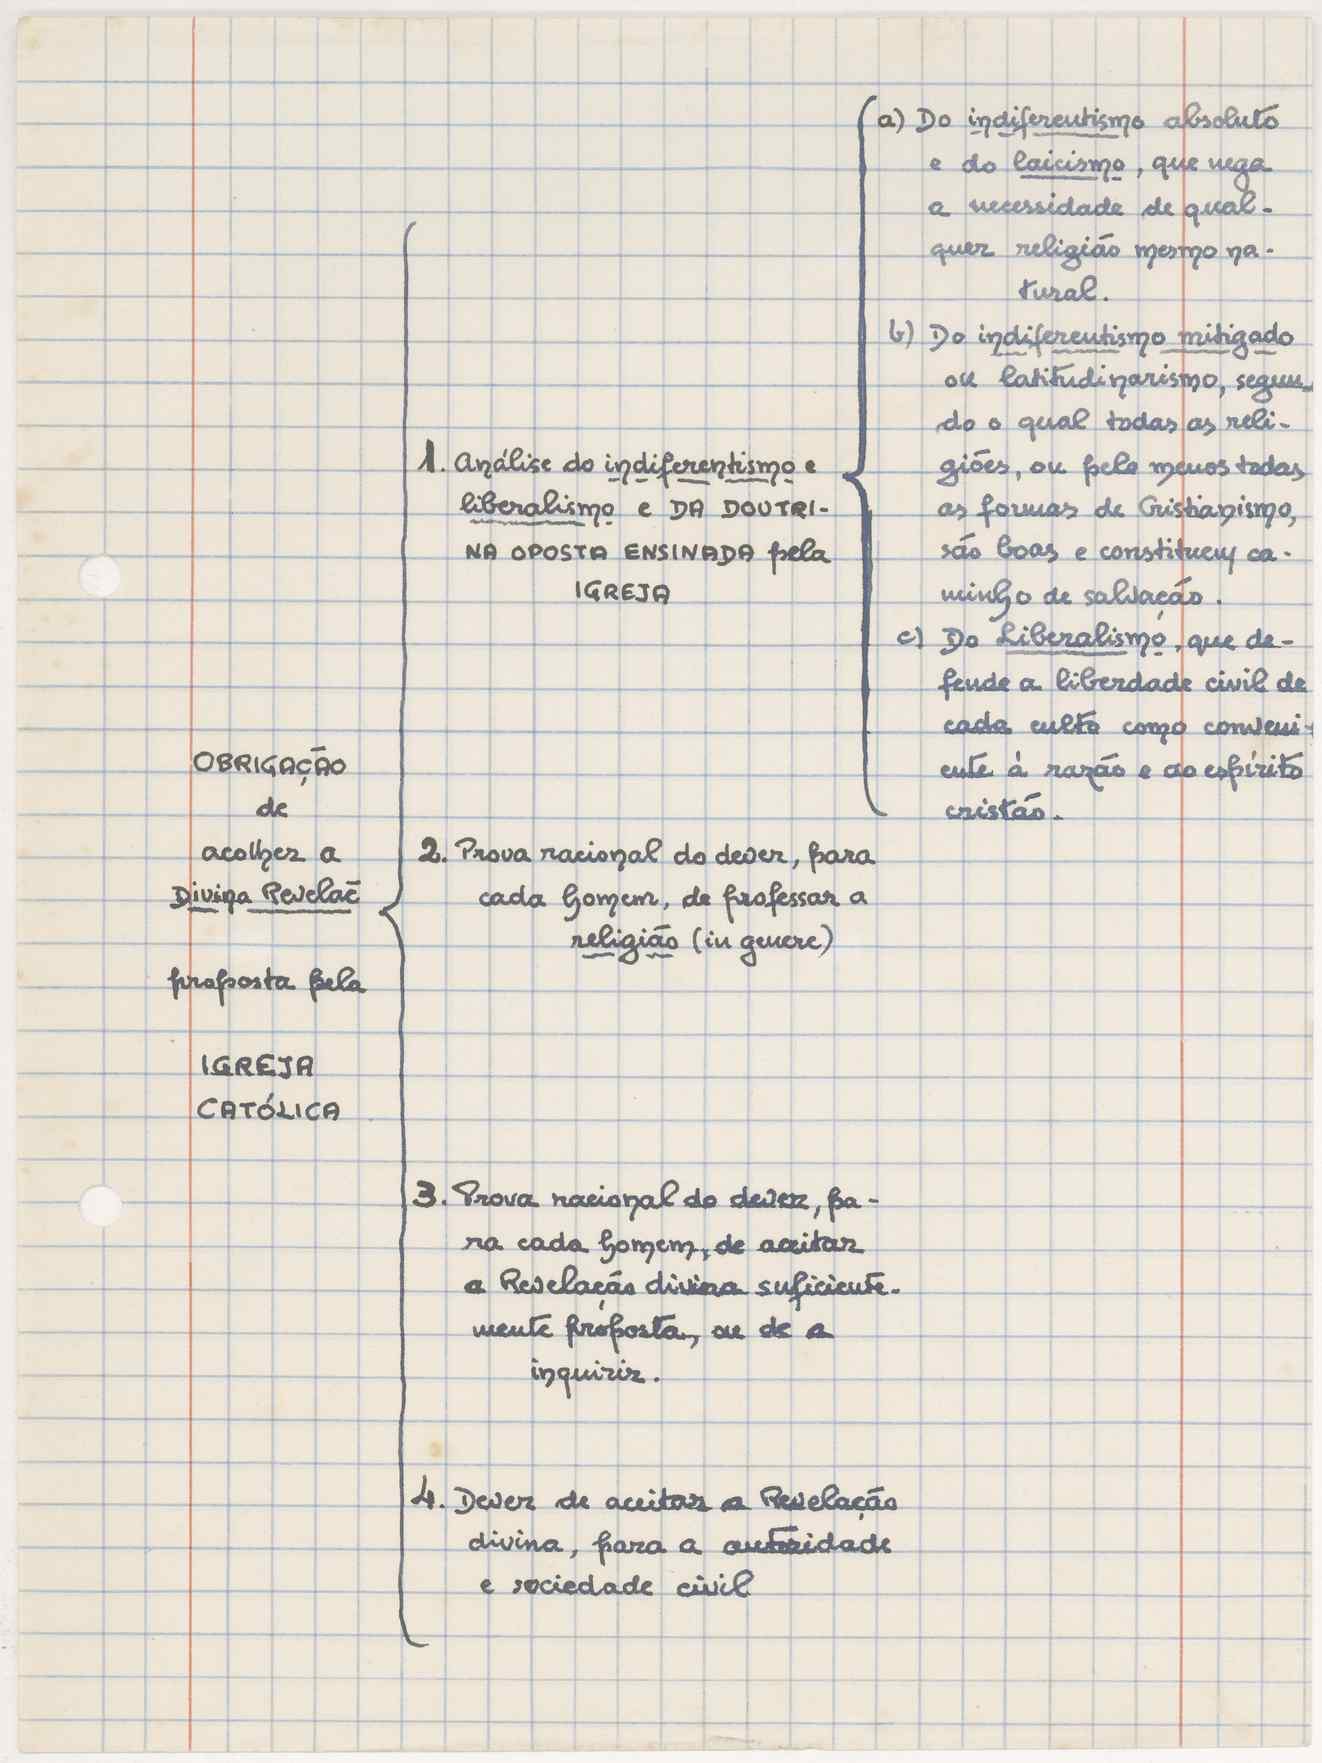 OBRIGAÇÃO
de
acolher a
Divina Revelaç̄
proposta pela
IGREJA
CATÓLICA
1. Análise do indiferentismo e
liberalismo e DA DOUTRI-
NA OPOSTA ENSINADA pela
IGREJA
a) Do indiferentismo absoluto
e do laicismo, que nega
a necessidade de qual-
quer religião mesmo na-
tural.
b) Do indiferentismo mitigado
ou latitudinarismo, segun-
do o qual todas as reli-
giões, ou pelo menos todas
as formas de Cristianismo,
são boas e constituem ca-
minho de salvação.
c) Do Liberalismo, que de-
fende a liberdade civil de
cada culto como conveni-
ente à razão e ao espírito
cristão.
2. Prova racional do dever, para
cada homem, de professar a
religião (in genere)
3. Prova racional do dever, pa-
ra cada homem, de aceitar
a Revelação divina suficiente-
mente proposta, ou de a
inquirir.
4. Dever de aceitar a Revelação
divina, para a autoridade
e sociedade civil